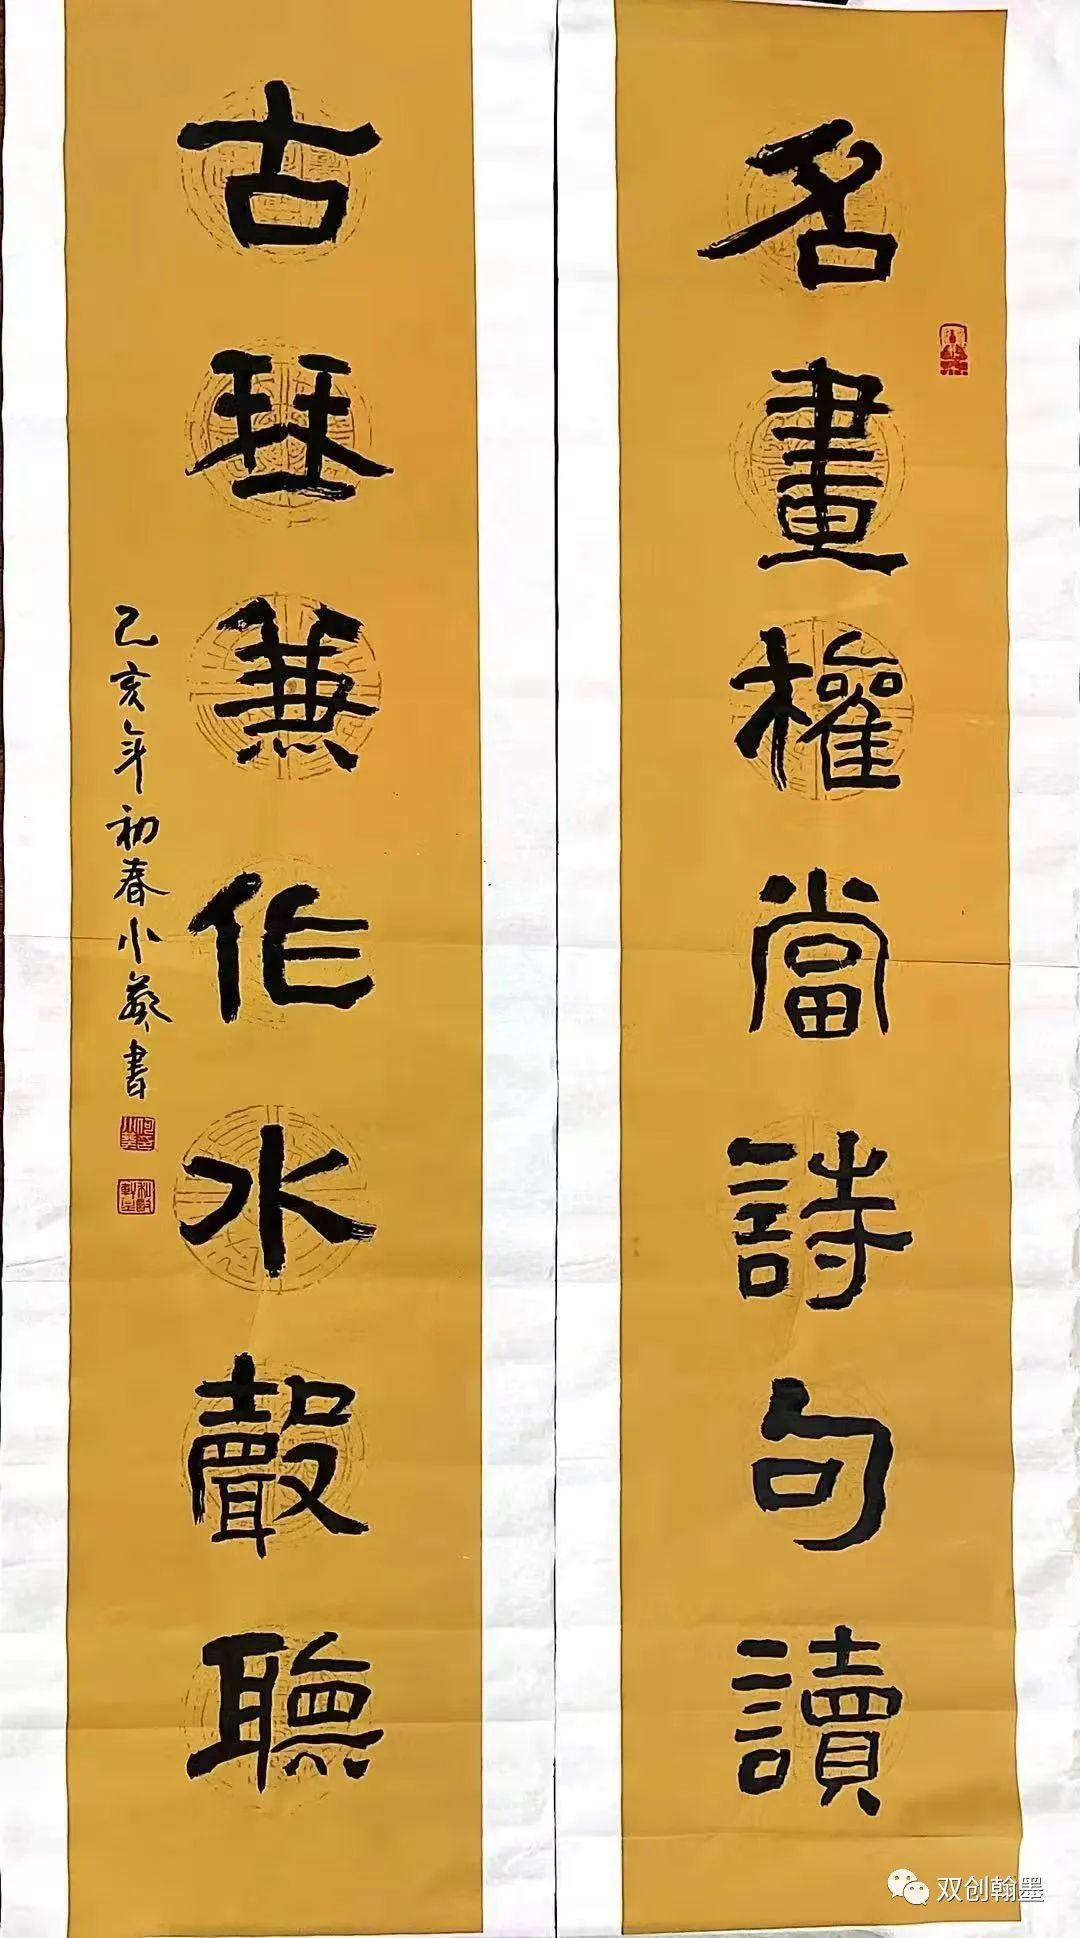 名畫權當詩句讀
古琴兼作水聲聽
己亥年初春小書
双创翰墨